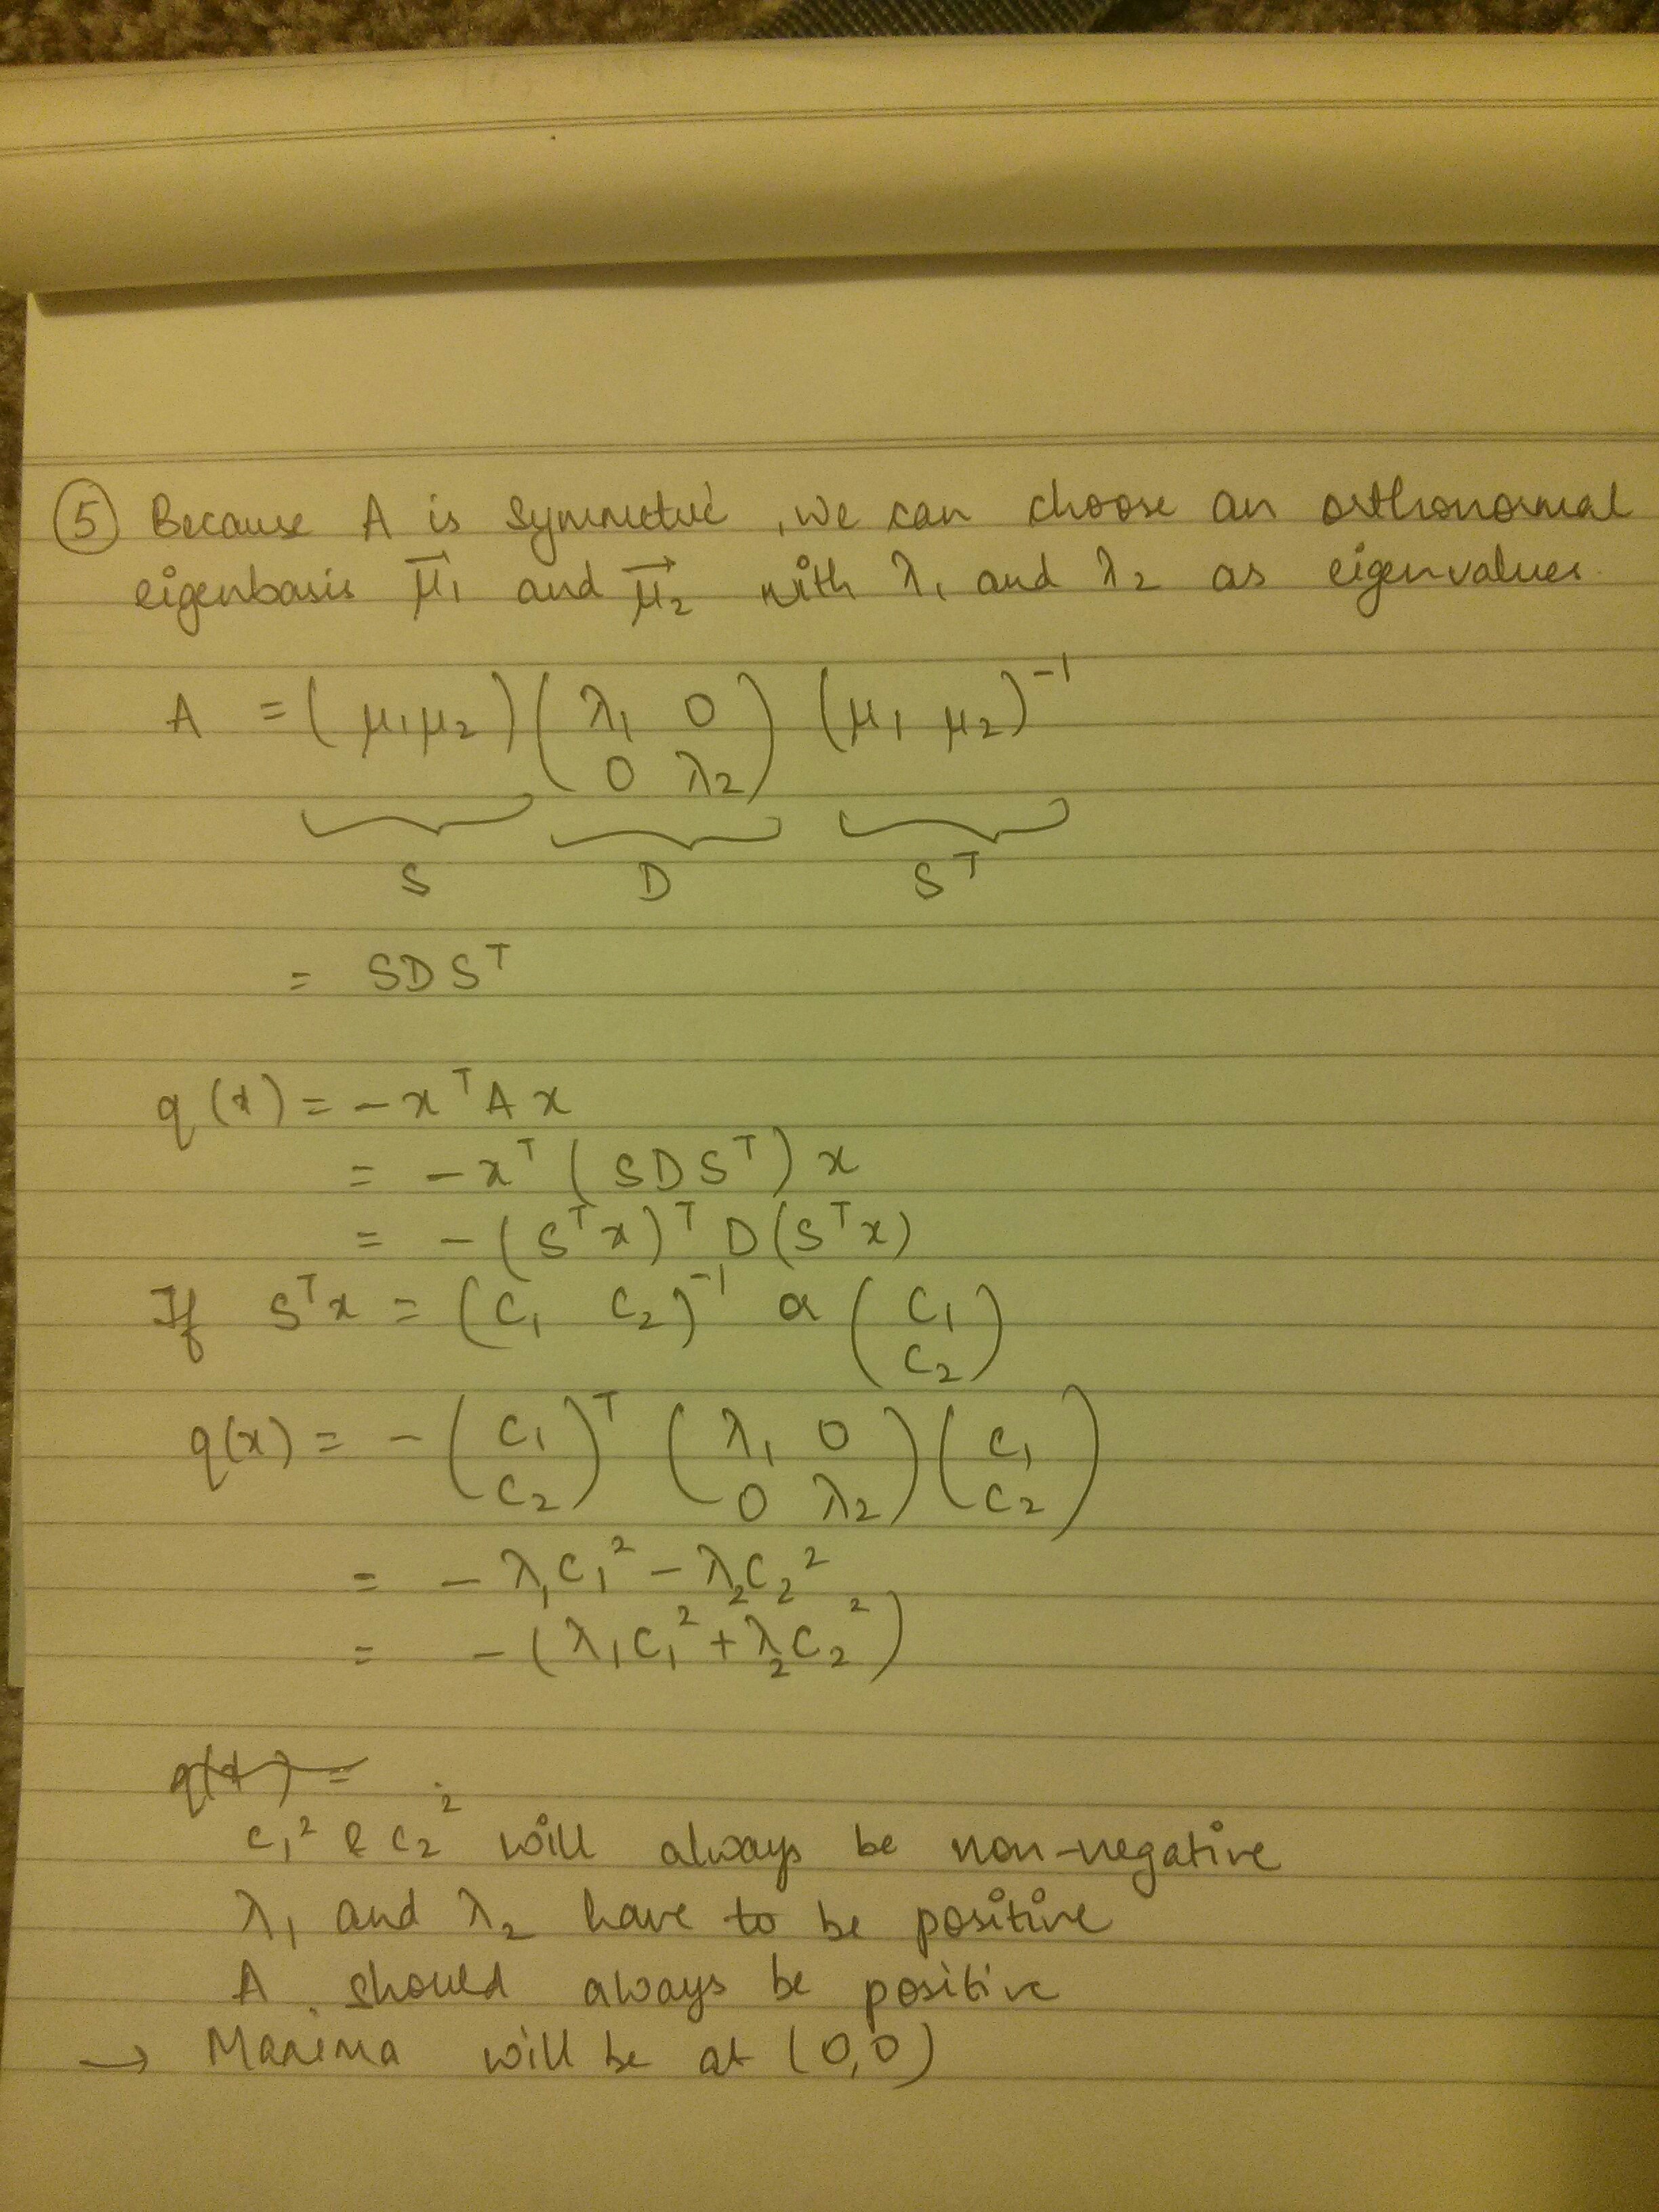 ⑤ Because A is symmetric, we can choose an orthonormal
eigenbasis μ⃗₁ and μ⃗₂ with λ₁ and λ₂ as eigenvalues.
A = (μ₁μ₂) (λ₁ 0 0 λ₂) (μ₁ μ₂)⁻¹
S D Sᵀ
= SDSᵀ
q(x) = -xᵀAx
= -xᵀ (SDSᵀ) x
= -(Sᵀx)ᵀ D(Sᵀx)
If Sᵀx = (c₁ c₂)⁻¹ a (c₁ c₂)
q(x) = -(c₁ c₂)ᵀ (λ₁ 0 0 λ₂) (c₁ c₂)
= -λ₁c₁² - λ₂c₂²
= -(λ₁c₁² + λ₂c₂²)
q(x) =
c₁² & c₂² will always be non-negative
λ₁ and λ₂ have to be positive
A should always be positive
→ Maxima will be at (0,0)